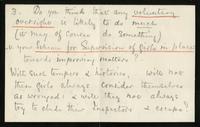 3. Do you think that any voluntary
oversight is likely to do much
(it may of course do something)
your Scheme for Supervision of Girls in places
towards improving matters?
With such tempers & histories, will not
these girls always consider themselves
as wronged? & will they not always
try to elude their Inspectors & escape?